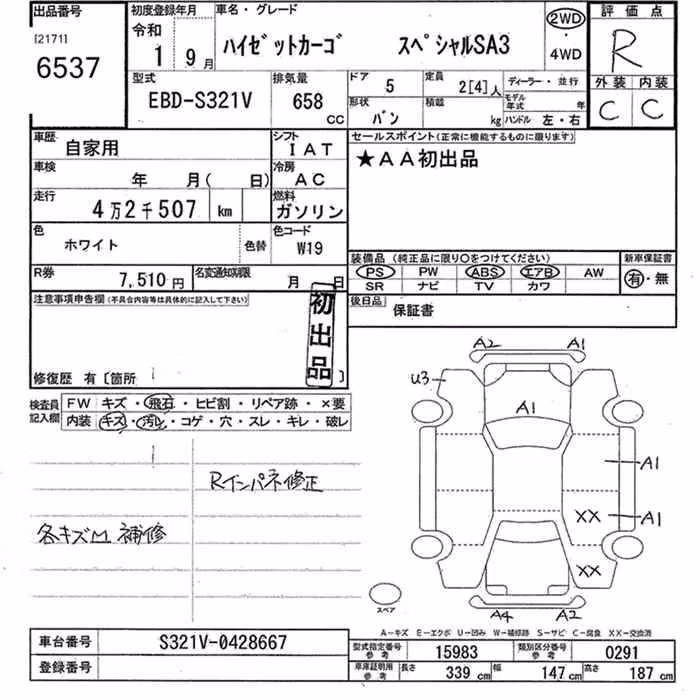 出品番号 初度登録年月 車名・グレード 2WD 評価点
[2171] 令和
6537 1 9月 ハイゼットカーゴ スペシャルSA3 ・ R
4WD
型式 排気量 ドア 5 定員 2[4]人 ディーラー・並行 外装 内装
EBD-S321V 658 CC 形状 バン 積載 kg モデル年式 年 C C
ハンドル 左・右
車歴 自家用 シフト IAT セールスポイント(正常に機能するものに限ります)
車検 年 月( 日) 冷房 AC ★AA初出品
走行 4万2千507 km 燃料 ガソリン
色 ホワイト 色替 色コード W19
装備品(純正品に限り○をつけてください) 新車保証書
R券 7,510円 名変通知期限 月 日 PS PW ABS エアB AW 有・無
SR ナビ TV カワ
注意事項申告欄(不具合内容等は具体的に記入して下さい) 初出品 後日品 保証書
修復歴 有〔箇所 〕
検査員記入欄 FW キズ・飛石・ヒビ割・リペア跡・×要
内装 キズ・汚レ・コゲ・穴・スレ・キレ・破レ
Rインパネ修正
各キズM 補修
A2 A1
U3
A1
A1
XX A1
XX
スペア A4 A2
A-キズ E-エクボ U-凹み W-補修跡 S-サビ C-腐食 XX-交換済
車台番号 S321V-0428667 型式指定番号 参考 15983 類別区分番号 参考 0291
登録番号 車庫証明用 参考 長さ 339cm 幅 147cm 高さ 187cm